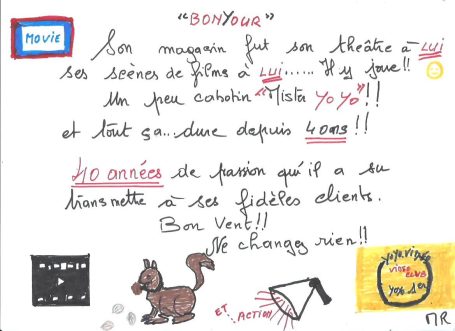 "BONYOUR"
MOVIE
Son magasin fut son theâtre à LUI
ses scènes de films à LUI...... Il y joue!!
Un peu cabotin "Mista YoYo"!!
et tout ça...dure depuis 40ans!!
40 années de passion qu'il a su
transmettre à ses fidèles clients.
Bon Vent!!
Ne changez rien!!
ET ACTION
YOYO VIDEO
VIDEO
CLUB
YOYO 1er
MR